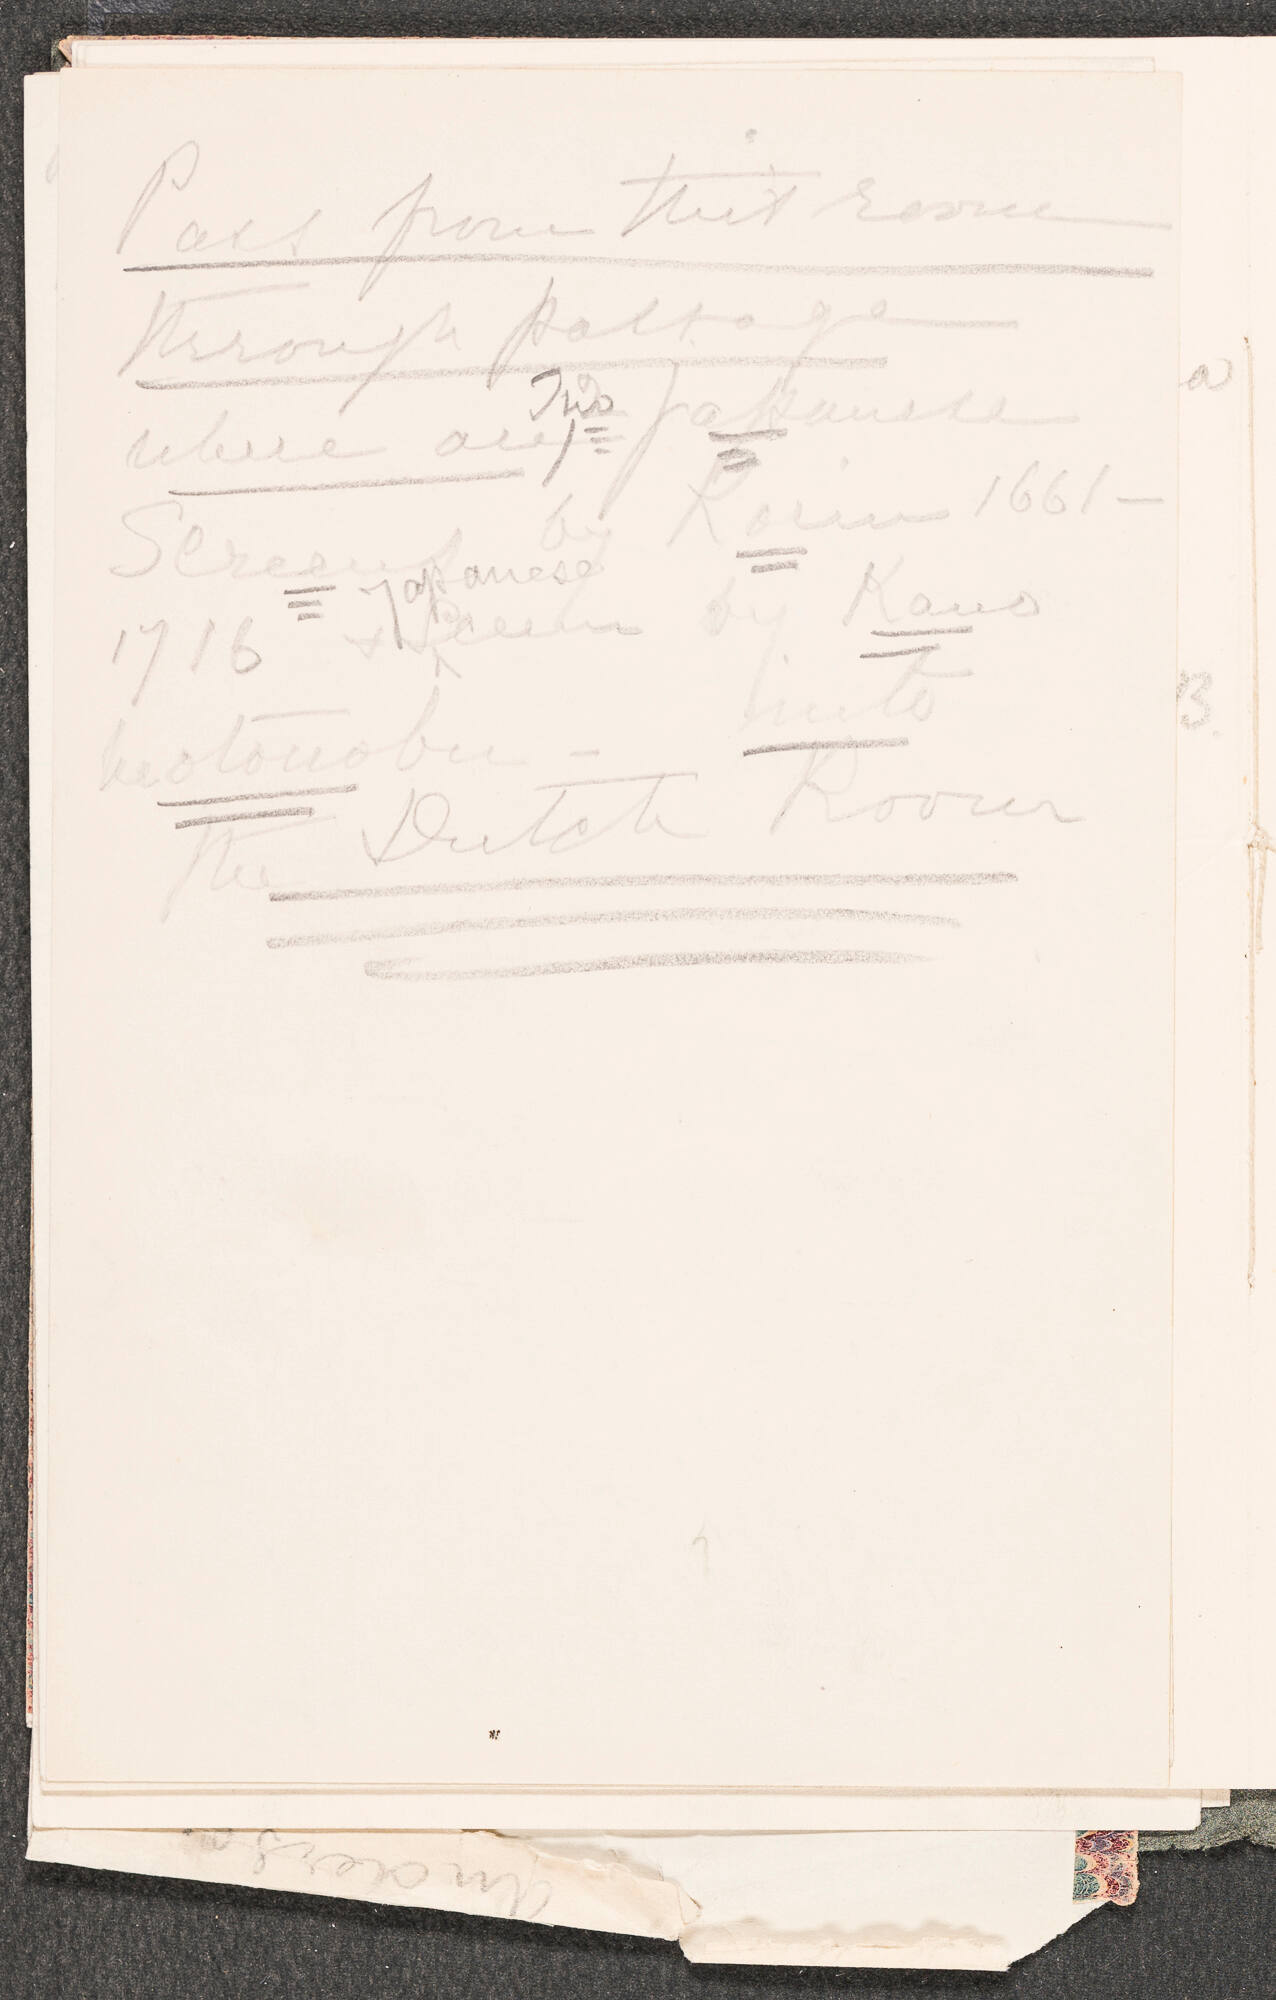 Pass from this room
through passage
where are Two Japanese
Screens by Korin 1661–
1716 + Japanese Screen by Kano
Motonobu – into
the Dutch Room
a
B.
Anderson